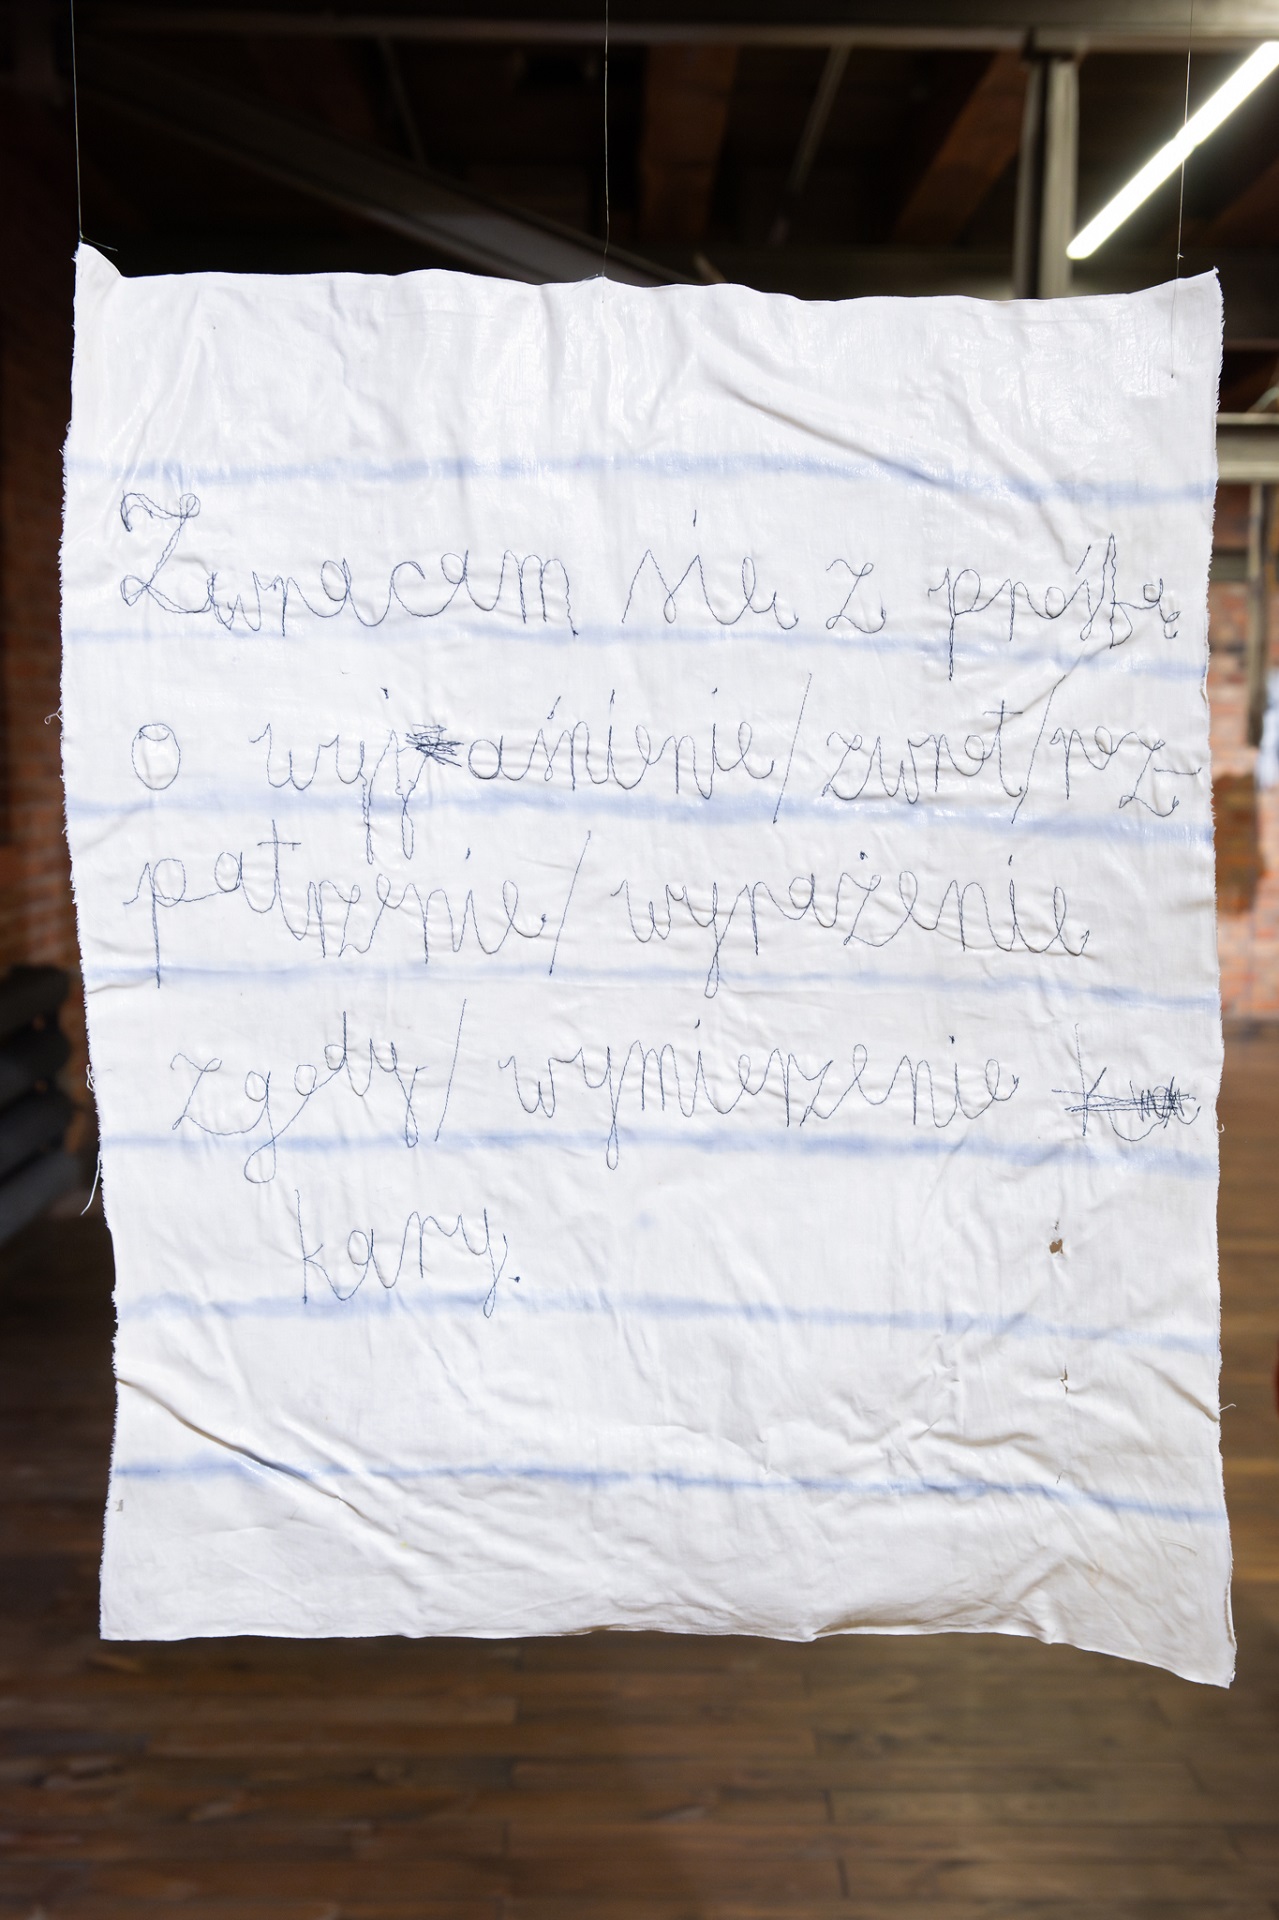 Zwracam się z prośbą
o wyjaśnienie/zwrot/roz-
patrzenie/wyrażenie
zgody/wymierzenie
kary.